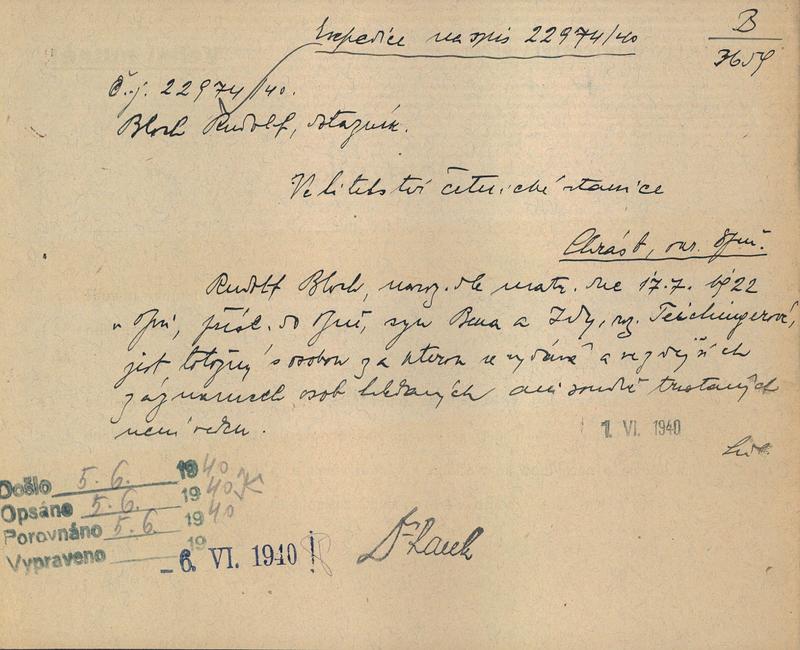 Expedice na spis 22974/40
B
3659
Č.j. 22974/40.
Bloch Rudolf, dotazník.
Velitelství četnické stanice
Chrást, okr. Plzeň.
Rudolf Bloch, naroz. dle matr. dne 17.7. 1922
v Plzni, přísl. do Plzně, syn Bena a Idy, roz. Teichingerové,
jest totožný s osobou za kterou se vydává a v zdejších
záznamech osob hledaných ani soudně trestaných
není veden.
1. VI. 1940
Došlo 5.6. 1940
Opsáno 5.6. 1940
Porovnáno 5.6 1940
Vypraveno 19
- 6. VI. 1940